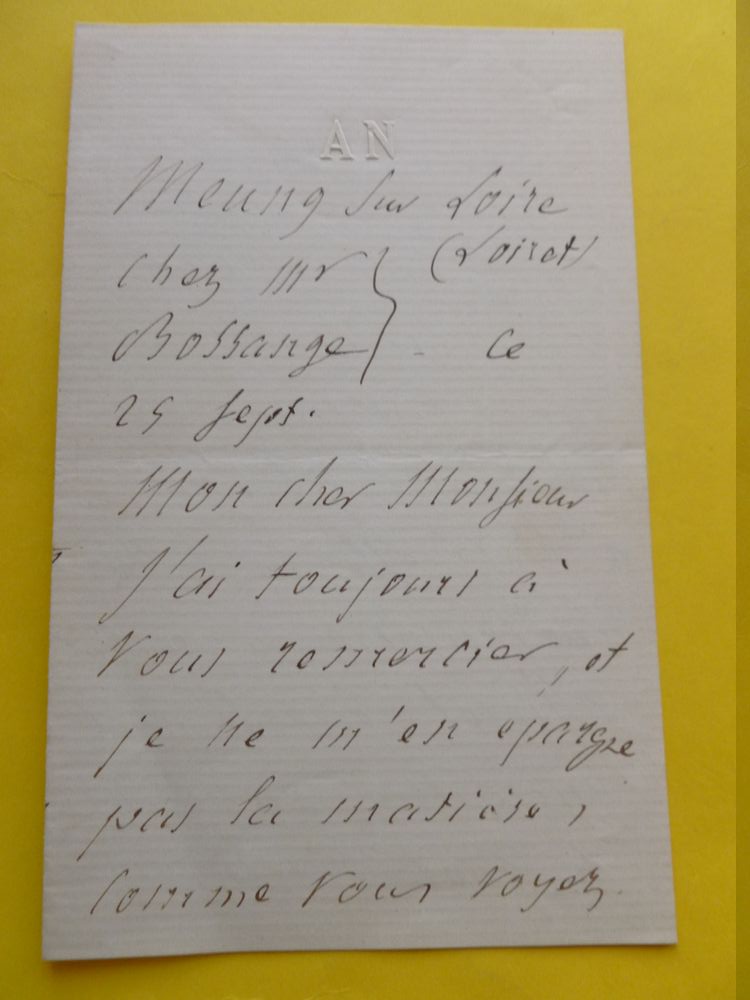 AN
Meung sur Loire
(Loiret)
chez Mr
Bossange } - ce
25 sept.
Mon cher Monsieur
J'ai toujours à
vous remercier, et
je ne m'en épargne
pas la matière,
comme vous voyez.